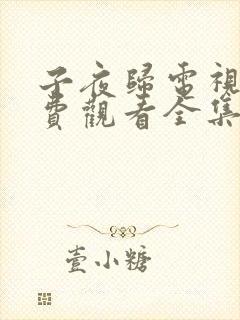 子夜歸電視
費觀看全集
壹小糖